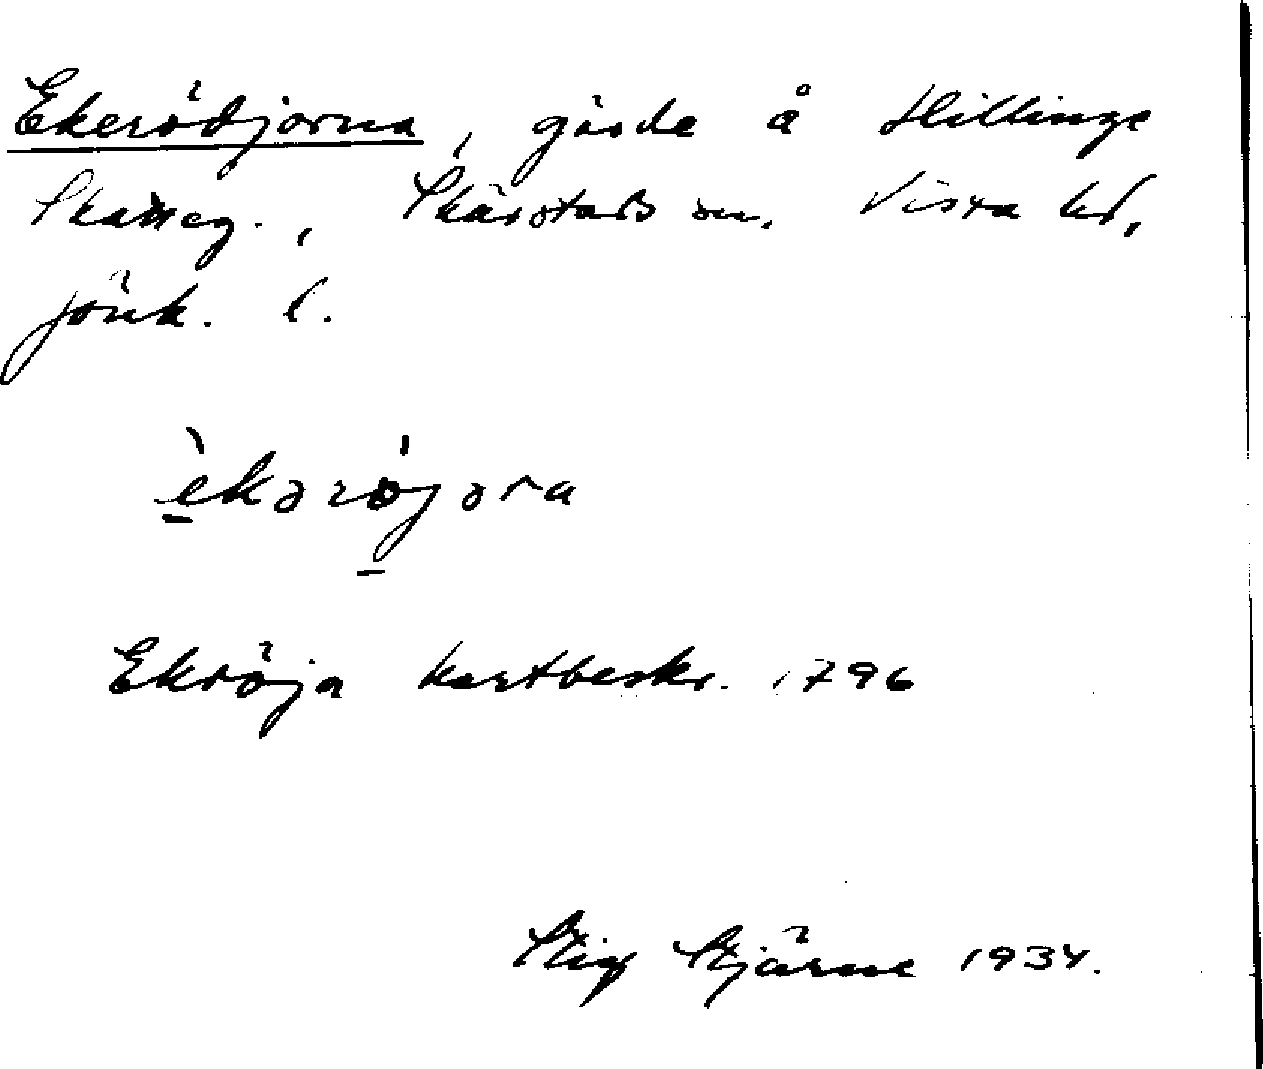 Ekerödjorna, gärde å Hillinge
Skatteg., Skärstads sn. Vista hd,
Jönk. l.
èkərö́jəra
Ekröja kartbeskr. 1796
Stig Stjärne 1934.